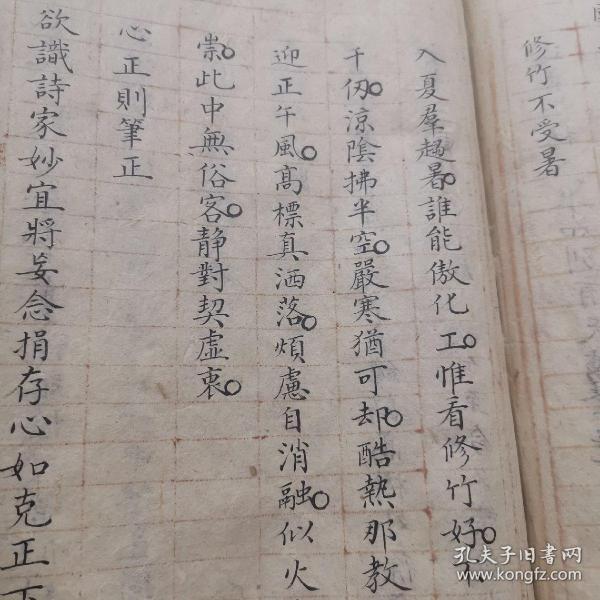 修竹不受暑
入夏羣趨暑誰能傲化工惟看修竹好
千仞涼陰拂半空嚴寒猶可却酷熱那教
迎正午風高標真洒落煩慮自消融似火
崇此中無俗客静對契虛衷
心正則筆正
欲識詩家妙宜將妄念捐存心如克正下
孔夫子旧书网
www.kongfz.com